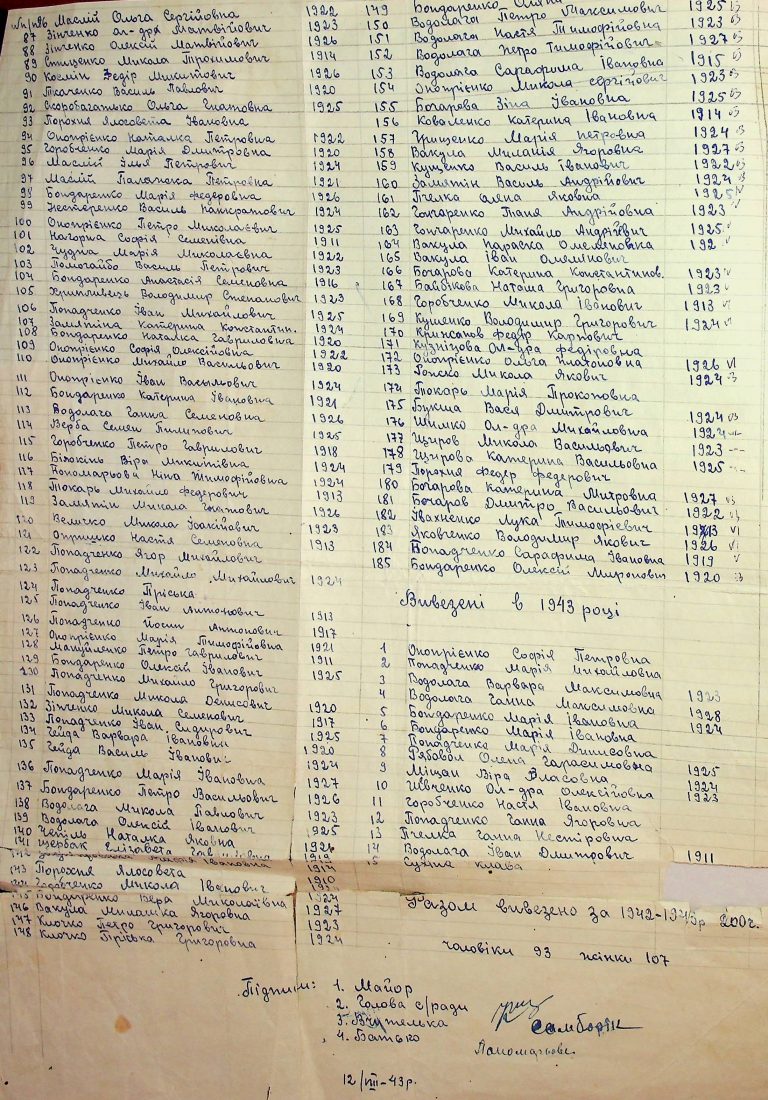 № п/п
86 Маслій Ольга Сергійовна 1922
87 Зінченко Ал-дра Матвійович 1923
88 Зінченко Олексій Матвійович 1926
89 Стиценко Микола Трохимович 1914
90 Костін Федір Микитович 1926
91 Ткаченко Василь Павлович 1920
92 Скоробагатько Ольга Гнатовна 1925
93 Порохня Ялосовета Івановна
94 Онопрієнко Наталка Петровна 1922
95 Горобченко Марія Дмитровна 1920
96 Маслій Петрович 1924
97 Маслій Палажка Петровна 1921
98 Бондаренко Марія Федоровна 1926
99 Нестеренко Василь Панкратович 1924
100 Онопрієнко Петро Миколаєвич 1925
101 Нагорна Софія Семенівна 1911
102 Чудна Марія Миколаєвна 1922
103 Помогайбо Василь Петрович 1923
104 Бондаренко Анастасія Семеновна 1916
105 Володимир Степанович 1923
106 Попадченко Іван Михайлович 1925
107 Замятіна Катерина Константин. 1924
108 Бондаренко Наталка Гавриловна 1920
109 Онопрієнко Софія Олексійовна 1922
110 Онопрієнко Михайло Васильович 1920
111 Онопрієнко Іван Васильович 1924
112 Бондаренко Катерина Івановна 1921
113 Водолага Ганна Семеновна 1926
114 Верба Семен Пилипович 1925
115 Горобченко Петро Гаврилович 1918
116 Білокінь Віра Микитівна 1924
117 Пономарьова Ніна Тимофійовна 1924
118 Токарь Михайло Федорович 1913
119 Замятін Микола Гнатович 1926
120 Величко Микола Іоакійович 1923
121 Опришко Настя Семеновна 1913
122 Попадченко Ягор Михайлович
123 Попадченко Михайло Михайлович 1924
124 Попадченко Пріська
125 Попадченко Іван Антонович 1913
126 Попадченко Йосип Антонович 1917
127 Онопрієнко Марія Тимофійовна 1921
128 Мануйленко Петро Гаврилович 1911
129 Бондаренко Олексій Іванович 1925
130 Попадченко Михайло Григорович
131 Попадченко Микола Денисович 1920
132 Зінченко Микола Семенович 1917
133 Попадченко Іван Сидорович 1925
134 Гейда Варвара Івановна 1920
135 Гейда Василь Іванович 1924
136 Попадченко Марія Івановна 1927
137 Бондаренко Петро Васильович 1926
138 Водолага Микола Павлович 1923
139 Водолага Олексій Іванович 1925
140 Чепіль Наталка Яковна 1926
141 Щербак Єлізавета 1919
142 Івановна 1914
143 Порохня Ялосовета 1910
144 Горобченко Микола Іванович
145 Бондаренко Вера Миколаївна 1924
146 Вакула Миланка Ягоровна 1927
147 Клочко Петро Григорович 1923
148 Клочко Пріська Григоровна 1924
149 Бондаренко 1925
150 Водолага Петро Максимович 1923
151 Водолага Настя Тимофійовна 1927
152 Водолага Петро Тимофійович
153 Водолага Сарафима Івановна 1915
154 Онопрієнко Микола Сергійович 1923
155 Богарова Зіна Івановна 1925
156 Коваленко Катерина Івановна 1914
157 Грищенко Марія Петровна 1924
158 Вакула Миланія Ягоровна 1927
159 Куценко Василь Іванович 1922
160 Замятін Василь Андрійович 1924
161 Пчелка Олена Яковна 1925
162 Гончаренко Таня Андрійовна 1923
163 Гончаренко Михайло Андрійович 1925
164 Вакула Параска Омеляновна 192
165 Вакула Іван Омелянович
166 Бочарова Катерина Константинов. 1923
167 Бабікова Наташа Григоровна 1923
168 Горобченко Микола Іванович 1913
169 Куценко Володимир Григорович 1924
170 Федір Карпович
171 Кузніцова Ал-дра Федіровна
172 Онопрієнко Ольга Платоновна 1926
173 Микола Якович 1924
174 Токарь Марія Прокоповна
175 Букша Вася Дмитрович
176 Шимко Ал-дра Михайловна 1924
177 Щиров Микола Васильович 1924
178 Щирова Катерина Васильовна 1923
179 Порохня Федер Федерович 1925
180 Бочарова Катерина Митровна
181 Бочаров Дмитро Васильович 1927
182 Івахненко Лука Тимофієвич 1922
183 Яковченко Володимир Якович 1913
184 Попадченко Сарафима Івановна 1926
185 Бондаренко Олексій Миронович 1919
1920
Вивезені в 1943 році
1 Онопрієнко Софія Петровна
2 Попадченко Марія Михайловна
3 Водолага Варвара Максимовна 1923
4 Водолага Ганна Максимовна
5 Бондаренко Марія Івановна 1928
6 Бондаренко Марія Івановна 1924
7 Попадченко Марія Динисовна
8 Рябовол Олена Гарасимовна
9 Міщан Віра Власовна 1925
10 Шевченко Ал-дра Олексійовна 1924
11 Горобченко Настя Івановна 1923
12 Попадченко Ганна Ягоровна
13 Пчелка Ганна Нестіровна
14 Водолага Іван Дмитрович 1911
15 Сухина Клава
Разом вивезено за 1942-1943р 200ч.
чоловіки 93 жінки 107
Підписи: 1. Майор
2. Голова с/ради
3. Вчителька
4. Батько
Самборік
Пономарьова
12/VIII-43р.